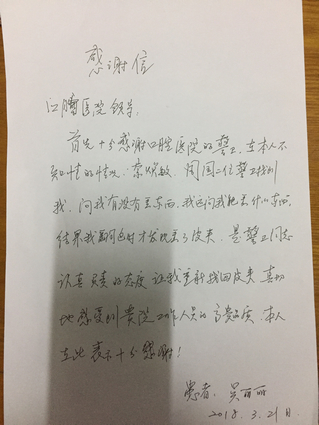 感谢信
口腔医院领导:
首先十分感谢口腔医院的警卫,在本人不
知情的情况,
周国二位警卫找到
我,问我有没有丢东西,我还问我能丢什么东西,
结果我翻包时才发现丢了皮夹,是警卫同志
认真负责的态度让我重新找回皮夹,真的
地感受到贵院工作人员的高贵品质,本人
在此表示十分感谢!
患者:吴丽丽
2018.3.21日.